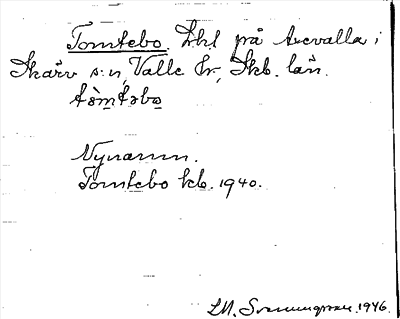 Tomtebo. Lht på Axevalla i
Skärv s:n, Valle hr, Skb. län.
tòm̲təbo̲
Nynamn.
Tomtebo kb. 1940.
L.M. Svanungsson. 1946.